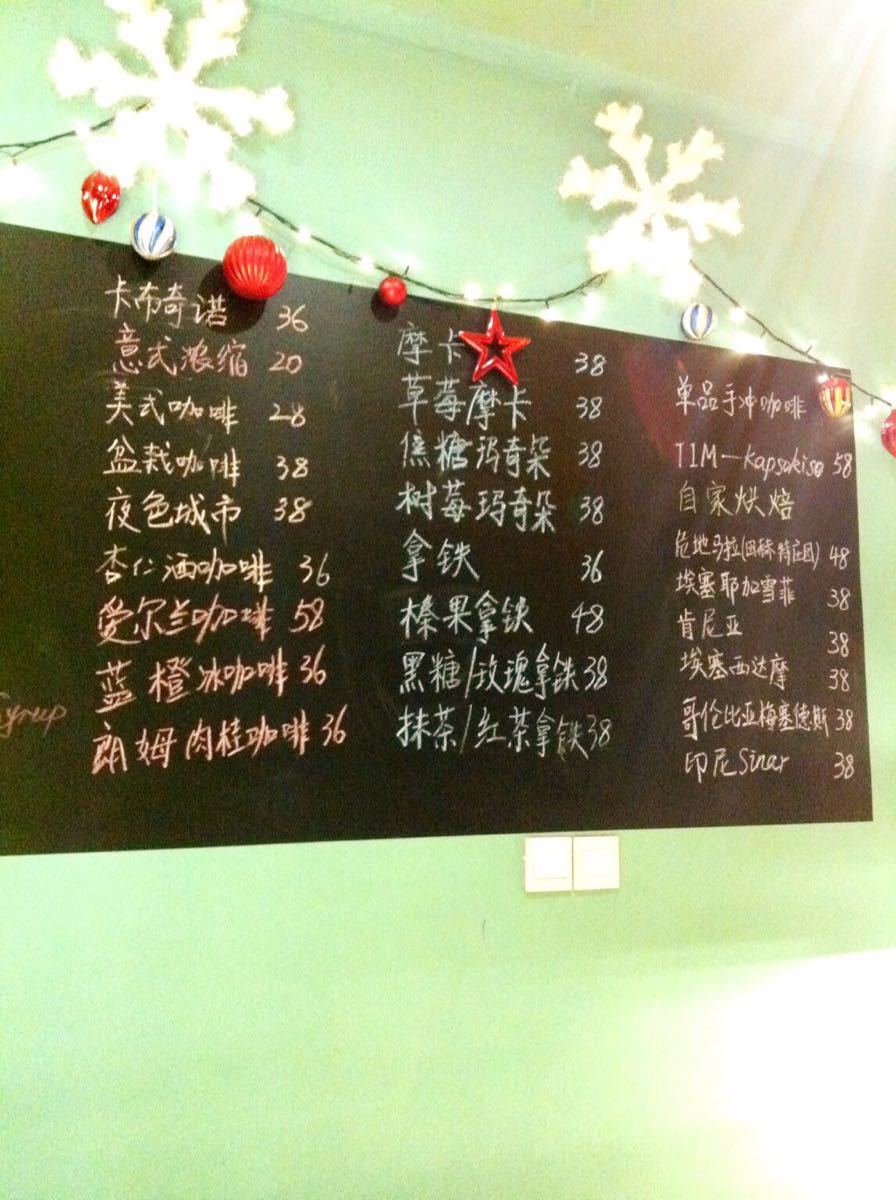 卡布奇诺 36
意式浓缩 20
美式咖啡 28
盆栽咖啡 38
夜色城市 38
杏仁酒咖啡 36
爱尔兰咖啡 58
蓝橙冰咖啡 36
朗姆肉桂咖啡 36
Syrup
摩卡 38
草莓摩卡 38
焦糖玛奇朵 38
树莓玛奇朵 38
拿铁 36
榛果拿铁 48
黑糖/玫瑰拿铁 38
抹茶/红茶拿铁 38
单品手冲咖啡
TIM-Kapsokiso 58
自家烘焙
危地马拉(田赫特庄园) 48
埃塞耶加雪菲 38
肯尼亚 38
埃塞西达摩 38
哥伦比亚梅塞德斯 38
印尼Sinar 38